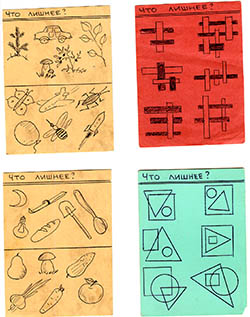 Что лишнее?
Что лишнее?
Что лишнее?
Что лишнее?